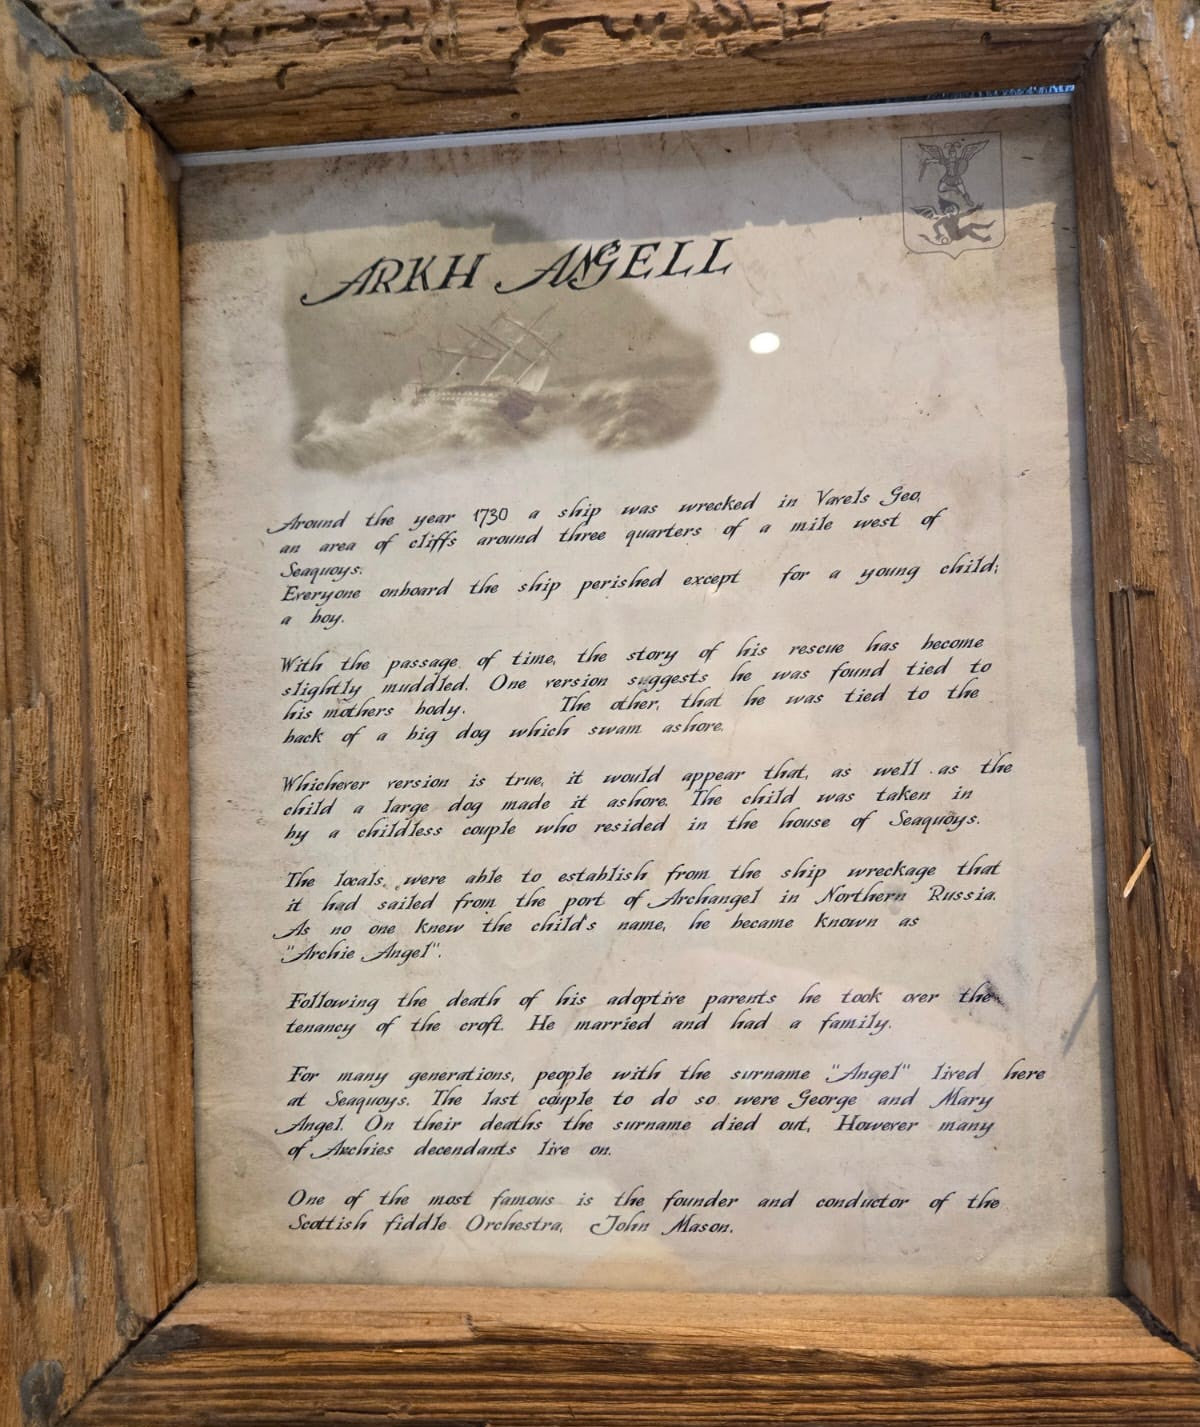 ARKH ANGELL
Around the year 1730 a ship was wrecked in Vavels Geo,
an area of cliffs around three quarters of a mile west of
Seaquoys.
Everyone onboard the ship perished except for a young child;
a boy.
With the passage of time, the story of his rescue has become
slightly muddled. One version suggests he was found tied to
his mothers body. The other, that he was tied to the
back of a big dog which swam ashore.
Whichever version is true, it would appear that, as well as the
child a large dog made it ashore. The child was taken in
by a childless couple who resided in the house of Seaquoys.
The locals were able to establish from the ship wreckage that
it had sailed from the port of Archangel in Northern Russia.
As no one knew the child's name, he became known as
"Archie Angel".
Following the death of his adoptive parents he took over the
tenancy of the croft. He married and had a family.
For many generations, people with the surname "Angel" lived here
at Seaquoys. The last couple to do so were George and Mary
Angel. On their deaths the surname died out, However many
of Archies decendants live on.
One of the most famous is the founder and conductor of the
Scottish fiddle Orchestra, John Mason.